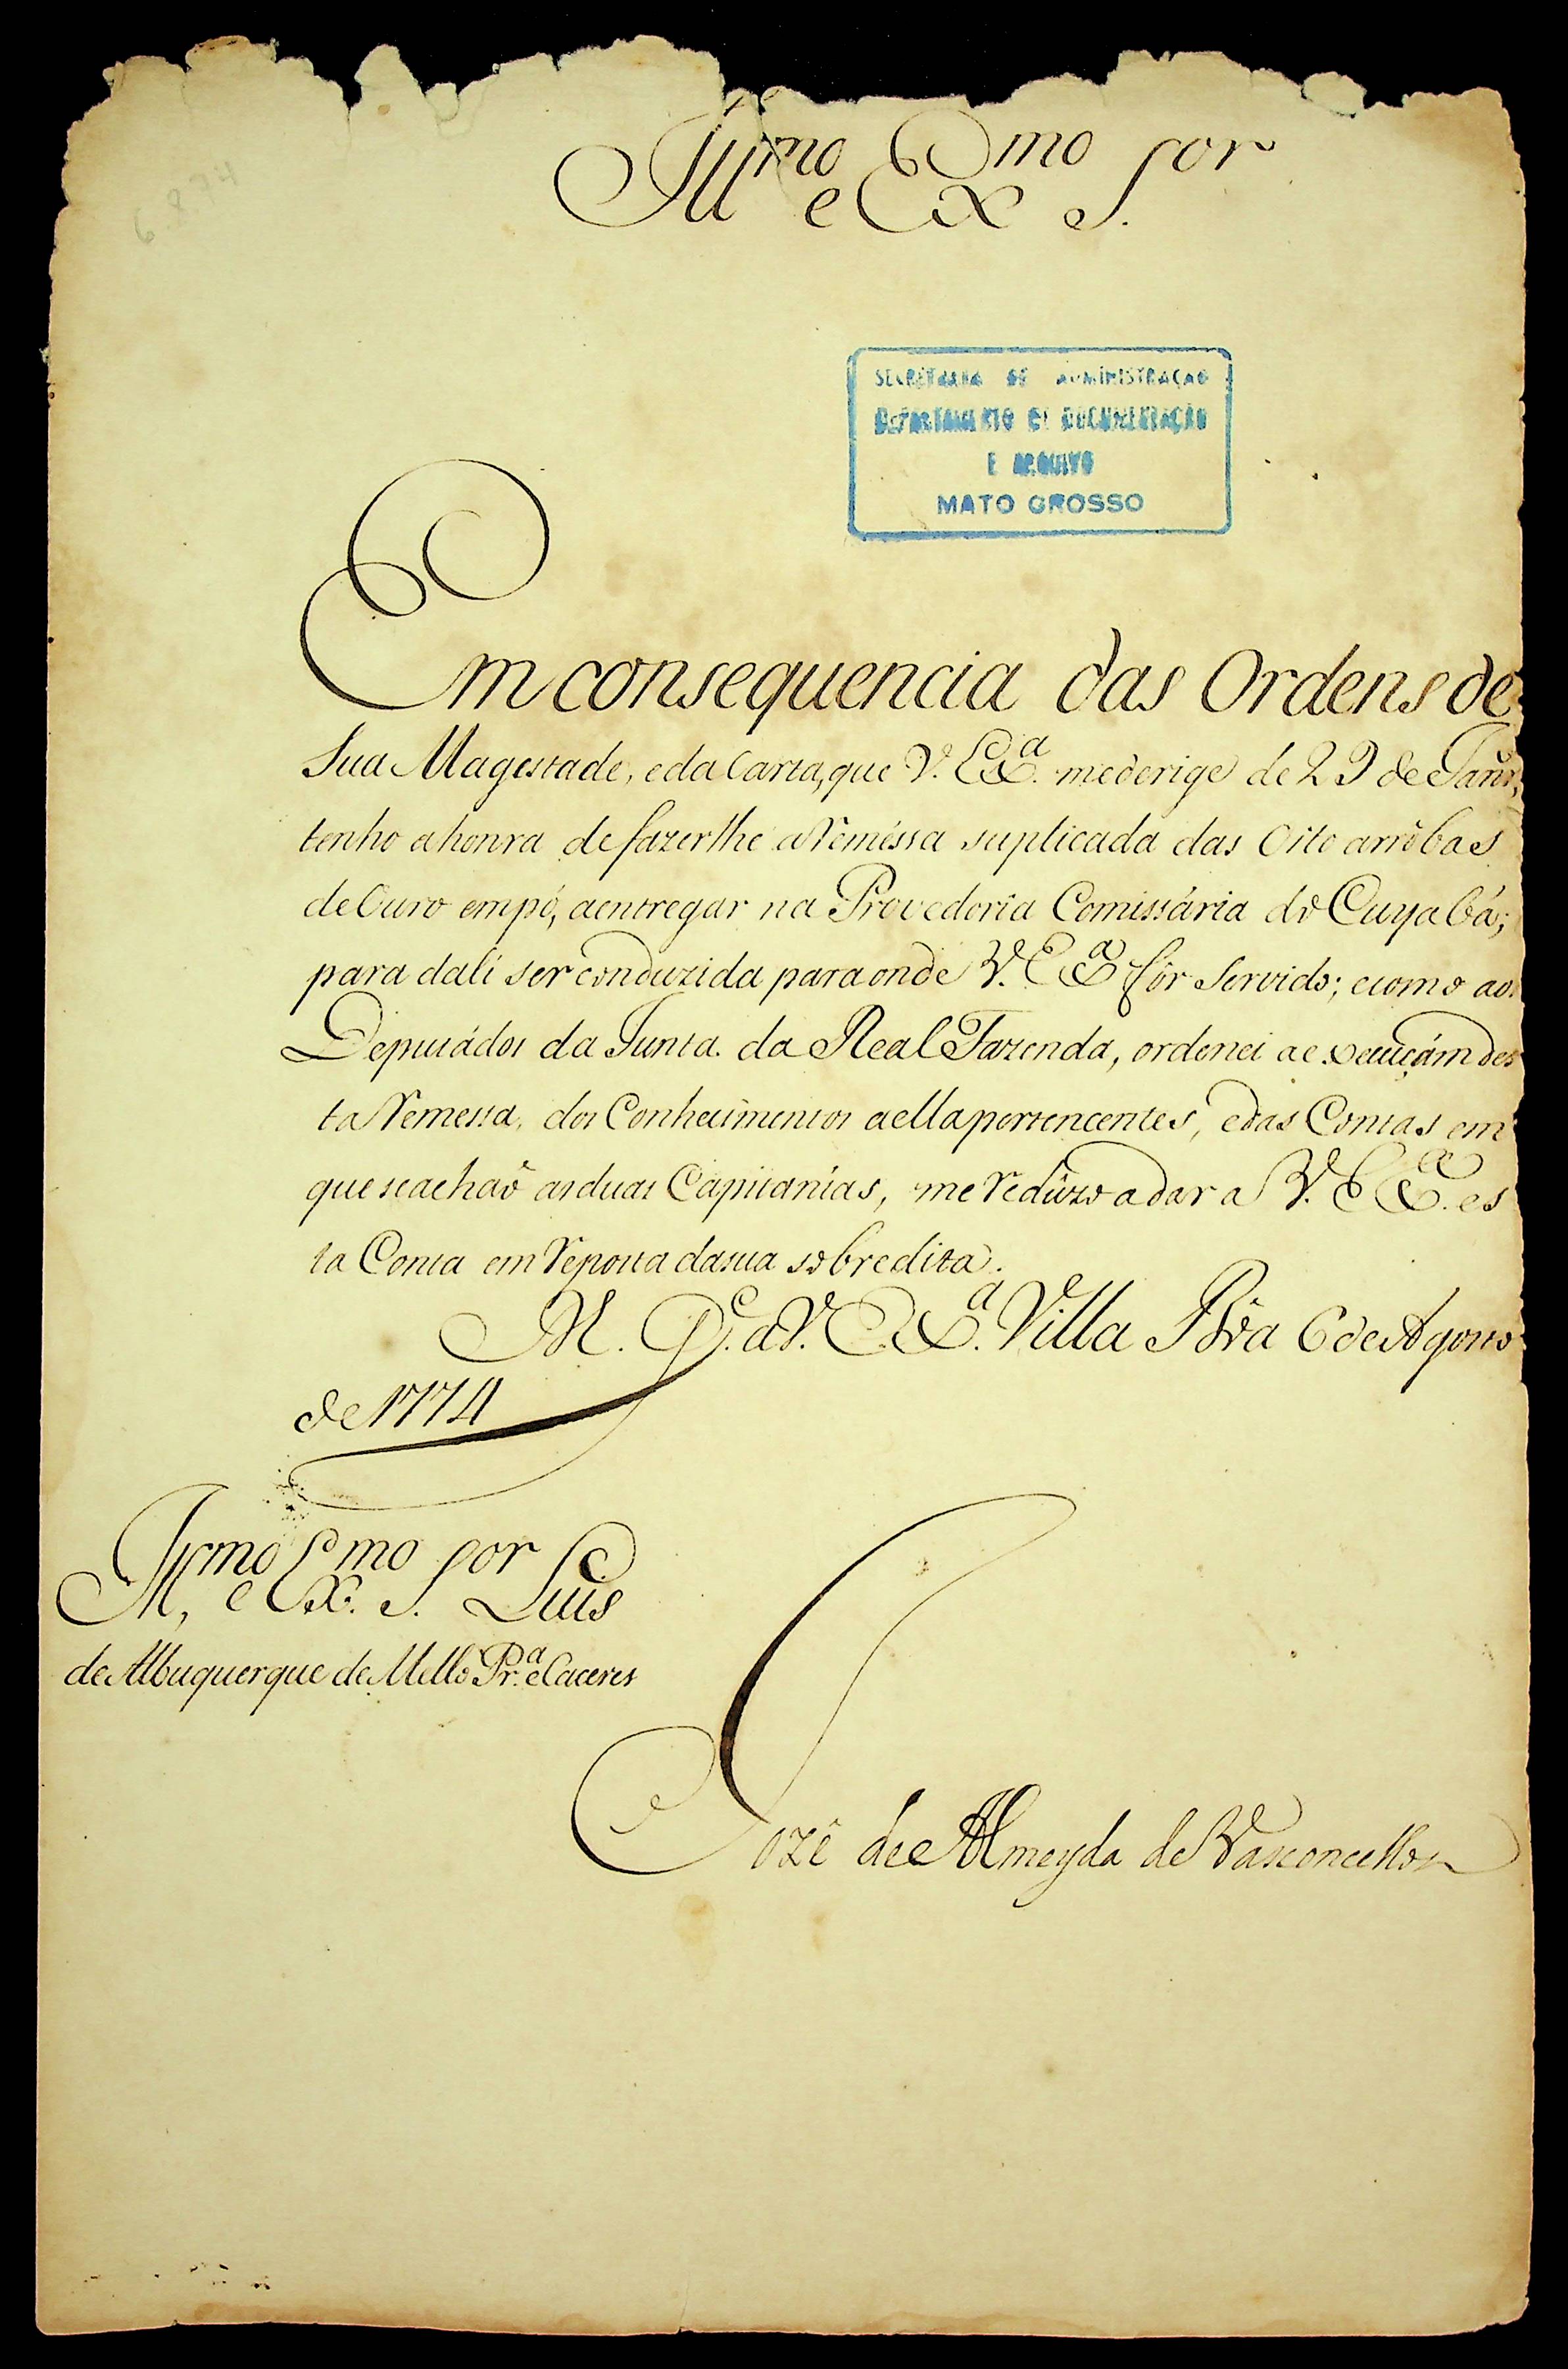 Ill.mo e Ex.mo S.or
SECRETARIA DE ADMINISTRAÇÃO
DEPARTAMENTO DE DOCUMENTAÇÃO
E ARQUIVO
MATO GROSSO
Em consequencia das Ordens de
Sua Magestade, e da Carta, que V. Ex.ª me derige de 29 de Janr.
tenho a honra de fazerlhe a Reméssa suplicada das Oito arrôbas
de Ouro em pó, a entregar na Provedoria Comissária do Cuyabá;
para dali ser conduzida para onde V. Ex.ª fôr Servido; e como aos
Deputádos da Junta da Real Fazenda, ordenei a execuçám des
ta Remessa, dos Conhecimentos a ella pertencentes, e das Contas em
que se achaõ as duas Capitanías, me redûzo a dar a V. Ex.ª es
ta Conta em reposta da sua sobredita.
D.s G.e a V. Ex.ª Villa Bôa 6 de Agosto
de 1774
Ill.mo e Ex.mo S.or Luis
de Albuquerque de Mello Pr.ª e Caceres
Jozê de Almeyda de Vasconcellos